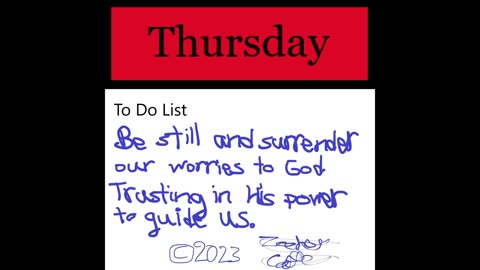 Thursday
To Do List
Be still and surrender
our worries to God
Trusting in His power
to guide us.
©2023